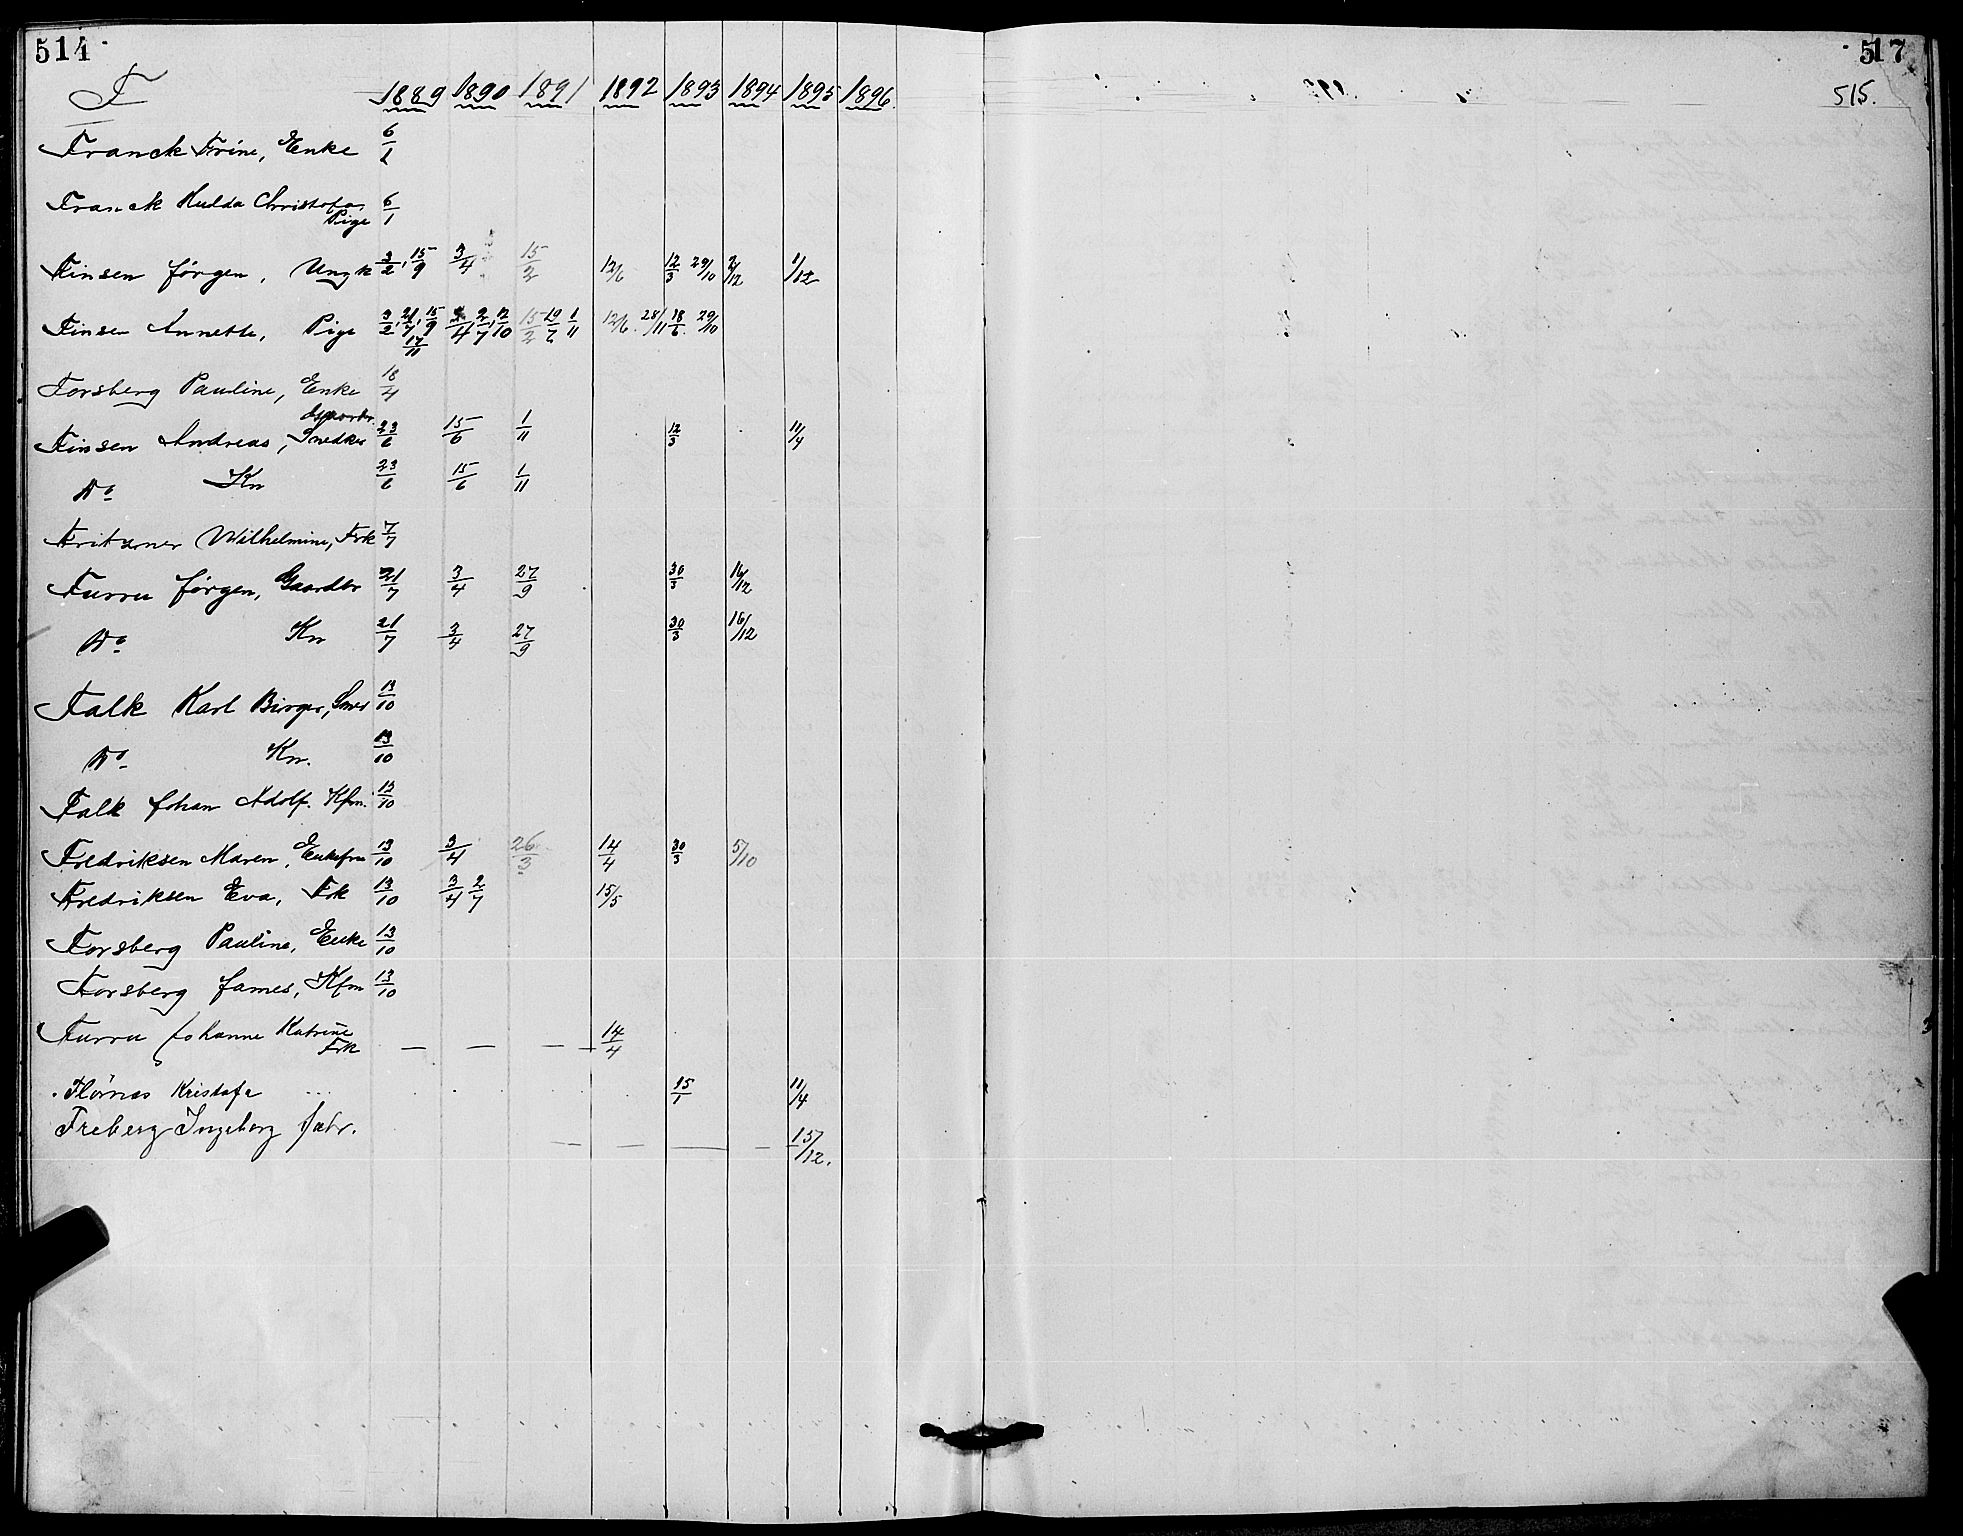 514
F
1889 1890 1891 1892 1893 1894 1895 1896.
Franck Trine, Enke 6/1
Franck Hulda Christofa, 6/1
Pige
Finsen Jørgen, Ungk 3/2, 15/9 3/4 15/2 12/6 12/3 29/10 2/12 1/12
Finsen Annette, Pige 3/2, 21/7, 15/9 3/4 2/7, 12/10 15/2 19/7 1/11 12/6 28/11 18/6 29/10
17/11
Forsberg Pauline, Enke 18/4
Finsen Andreas, Snedker 23/6 15/6 1/11 12/3 11/4
Do Kn 23/6 15/6 1/11
Fritzner Wilhelmine, Frk 7/7
Furru Jørgen, Gaardbr 21/7 3/4 27/9 30/3 16/12
Do Kn 21/7 3/4 27/9 30/3 16/12
Falk Karl Birger, 13/10
Do Kn. 13/10
Falk Johan Adolf. Kfm. 13/10
Fredriksen Maren, Enkefru 13/10 3/4 26/3 14/4 30/3 5/10
Fredriksen Eva, Frk 13/10 3/4 2/7 15/5
Forsberg Pauline, Enke 13/10
Forsberg James, Kfm 13/10
Furru Johanne Katrine
Frk — — — 14/4
Flörnas Kristofa ... 15/1 11/4
Freberg Ingeborg — — — — 15/12.
517
515.